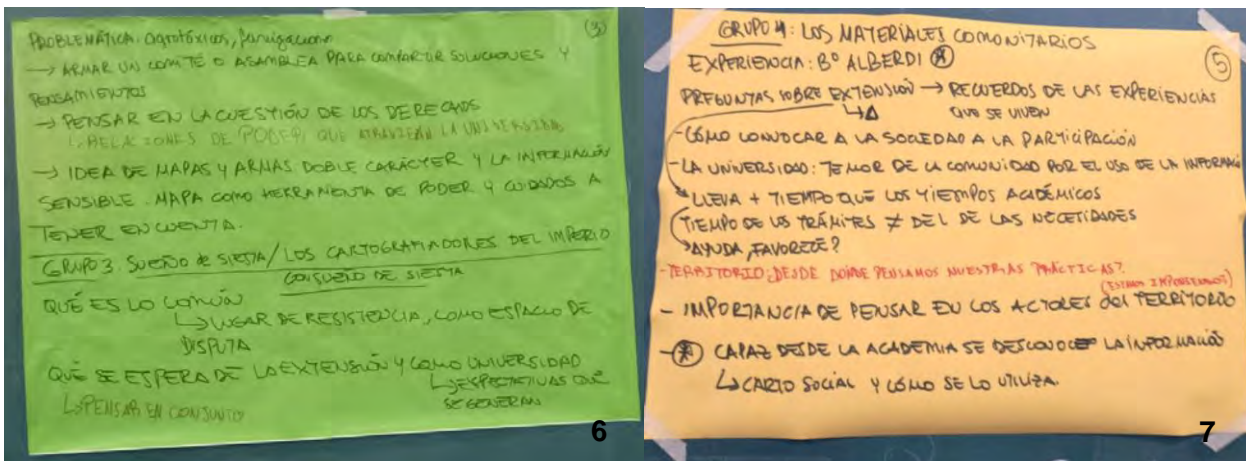 PROBLEMÁTICA: agrotóxicos, fumigaciones
(3)
→ ARMAR UN COMITÉ O ASAMBLEA PARA COMPARTIR SOLUCIONES Y
PENSAMIENTOS
→ PENSAR EN LA CUESTIÓN DE LOS DERECHOS
↳ RELACIONES DE PODER, QUE ATRAVIESAN LA UNIVERSIDAD
→ IDEA DE MAPAS Y ARMAS DOBLE CARÁCTER Y LA INFORMACIÓN
SENSIBLE. MAPA COMO HERRAMIENTA DE PODER Y CUIDADOS A
TENER EN CUENTA.
GRUPO 3. SUEÑO de SIESTA/LOS CARTOGRAFIADORES DEL IMPERIO
CONSUELO DE SIESTA
QUÉ ES LO COMÚN
↳ LUGAR DE RESISTENCIA, COMO ESPACIO DE
DISPUTA
QUÉ SE ESPERA DE LA EXTENSIÓN Y COMO UNIVERSIDAD
↳ ESPECTATIVAS QUE
SE GENERAN
↳ PENSAR EN CONJUNTO
6
GRUPO 4: LOS MATERIALES COMONITARIOS
EXPERIENCIA: Bº ALBERDI (*)
(5)
PREGUNTAS SOBRE EXTENSIÓN → RECUERDOS DE LAS EXPERIENCIAS
QUE SE VIVEN
↳ Δ
- CÓMO CONVOCAR A LA SOCIEDAD A LA PARTICIPACIÓN
- LA UNIVERSIDAD: TEMOR DE LA COMUNIDAD POR EL USO DE LA INFORMACIÓ
LLEVA + TIEMPO QUE LOS TIEMPOS ACADÉMICOS
TIEMPO DE LOS TRÁMITES ≠ DEL DE LAS NECETIDADES
AYUDA, FAVORECE?
- TERRITORIO: DESDE DÓNDE PENSAMOS NUESTRAS PRÁCTICAS?
- IMPORTANCIA DE PENSAR EN LOS ACTORES del TERRITORIO
- (*) CAPAZ DESDE LA ACADEMIA SE DESCONOCE LA INFORMACIÓN
↳ CARTO SOCIAL Y CÓMO SE LO UTILIZA.
7